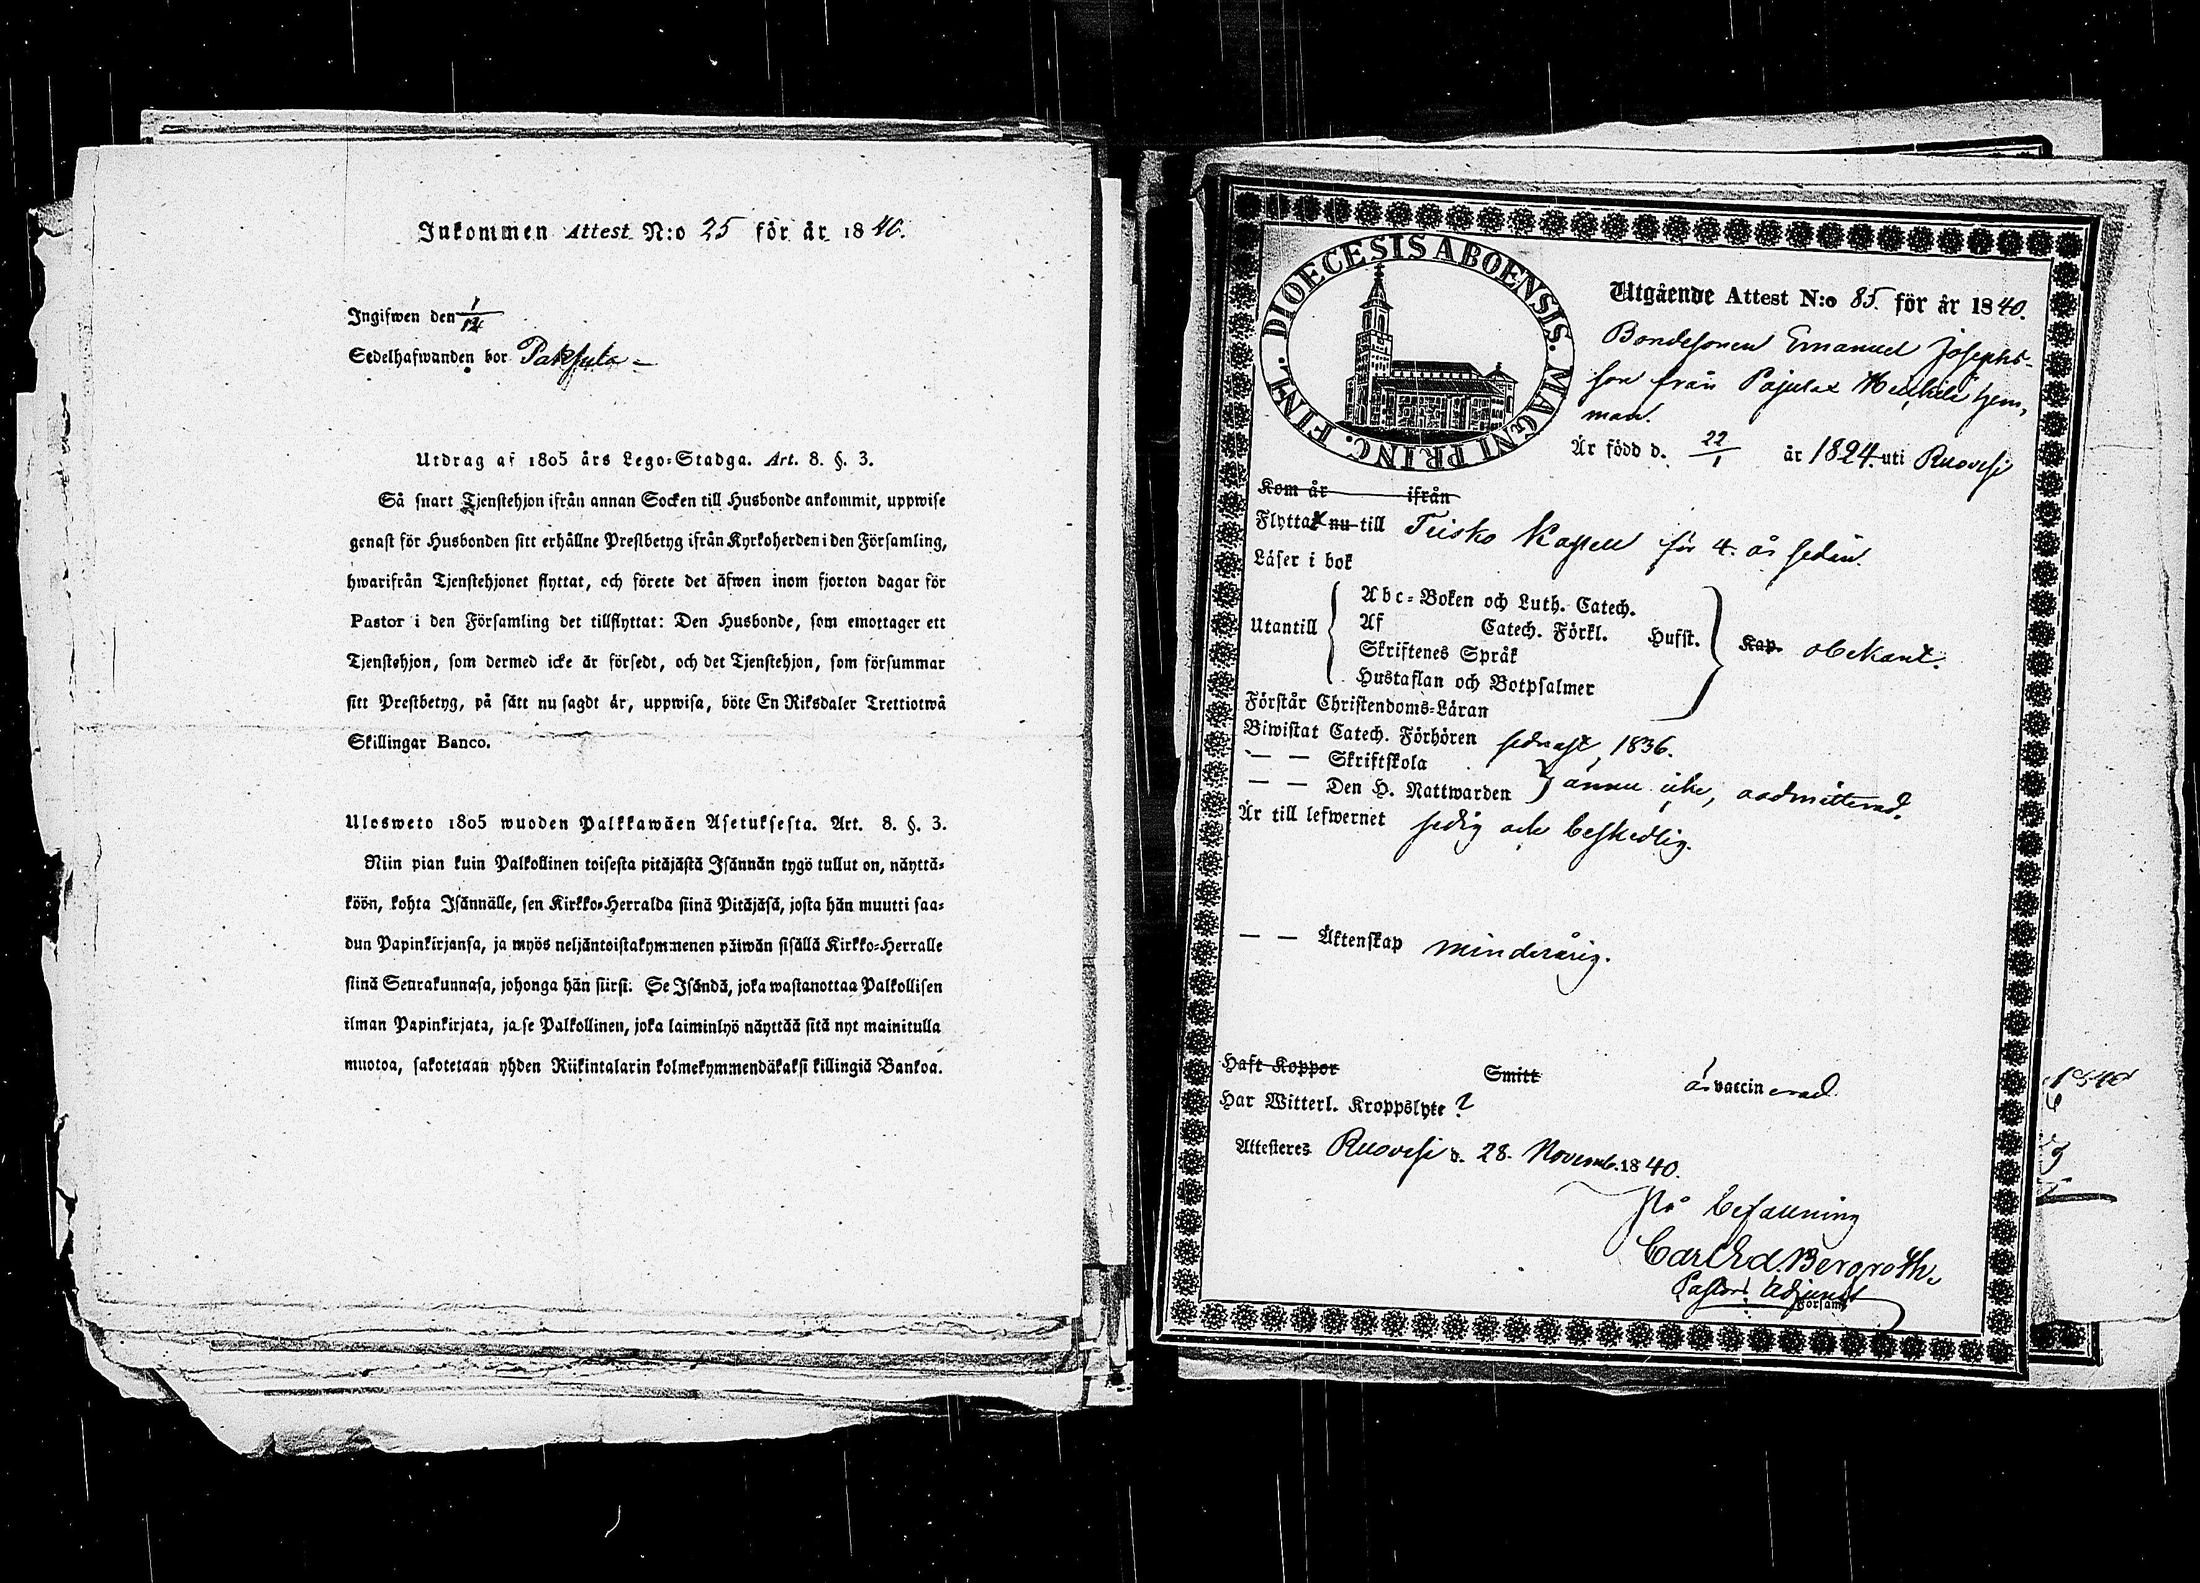 Inkommen Attest N:o 25 för år 1840.
Ingifwen den 1/12
Sedelhafwanden bor Paksula
Utdrag af 1805 års Lego-Stadga. Art. 8. §. 3.
Så snart Tjenstehjon ifrån annan Socken till Husbonde ankommit, uppwise
genast för Husbonden sitt erhållne Prestbetyg ifrån Kyrkoherden i den Församling,
hwarifrån Tjenstehjonet flyttat, och förete det äfwen inom fjorton dagar för
Pastor i den Församling det tillflyttat: Den Husbonde, som emottager ett
Tjenstehjon, som dermed icke är försedt, och det Tjenstehjon, som försummar
sitt Prestbetyg, på sätt nu sagdt är, uppwisa, böte En Riksdaler Trettiotwå
Skillingar Banco.
Ulosweto 1805 wuoden Palkkawäen Asetuksesta. Art. 8. §. 3.
Niin pian kuin Palkollinen toisesta pitäjästä Isännän tygö tullut on, näyttä-
köön, kohta Isännälle, sen Kirkko-Herralda siinä Pitäjäsä, josta hän muutti saa-
dun Papinkirjansa, ja myös neljäntoistakymmenen päiwän sisällä Kirkko-Herralle
siinä Seurakunnasa, johonga hän siirsi. Se Isändä, joka wastanottaa Palkollisen
ilman Papinkirjata, ja se Palkollinen, joka laiminlyö näyttää sitä nyt mainitulla
muotoa, sakotetaan yhden Riikintalarin kolmekymmendäkaksi killingiä Bankoa.
DIOECESIS ABOENSIS. MAGNI PRINC. FINL.
Utgående Attest N:o 85. för år 1840.
Bondesonen Emanuel Josephs-
son från Pajulax hem-
man.
Är född d. 22/1 år 1824. uti Ruovesi
Kom år ifrån
Flyttat nu till Teisko Kapell för 4. år sedan.
Läser i bok
Utantill
Abc-Boken och Luth. Catech.
Af Catech. Förkl. Hufst.
Skriftenes Språk
Hustaflan och Botpsalmer
Kap. obekant.
Förstår Christendoms-Läran
Biwistat Catech. Förhören sednast, 1836.
— — Skriftskola
— — Den H. Nattwarden } ännu icke, aadmitterad.
Är till lefwernet sedig och beskedlig.
— — Äktenskap minderårig.
Haft Koppor Smitt är vaccinerad.
Har Witterl. Kroppslyte ?
Attesteres Ruovesi d. 28. Novemb. 1840.
På befallning
Carl Ed. Bergroth.
Pastors Adjunct
Församl